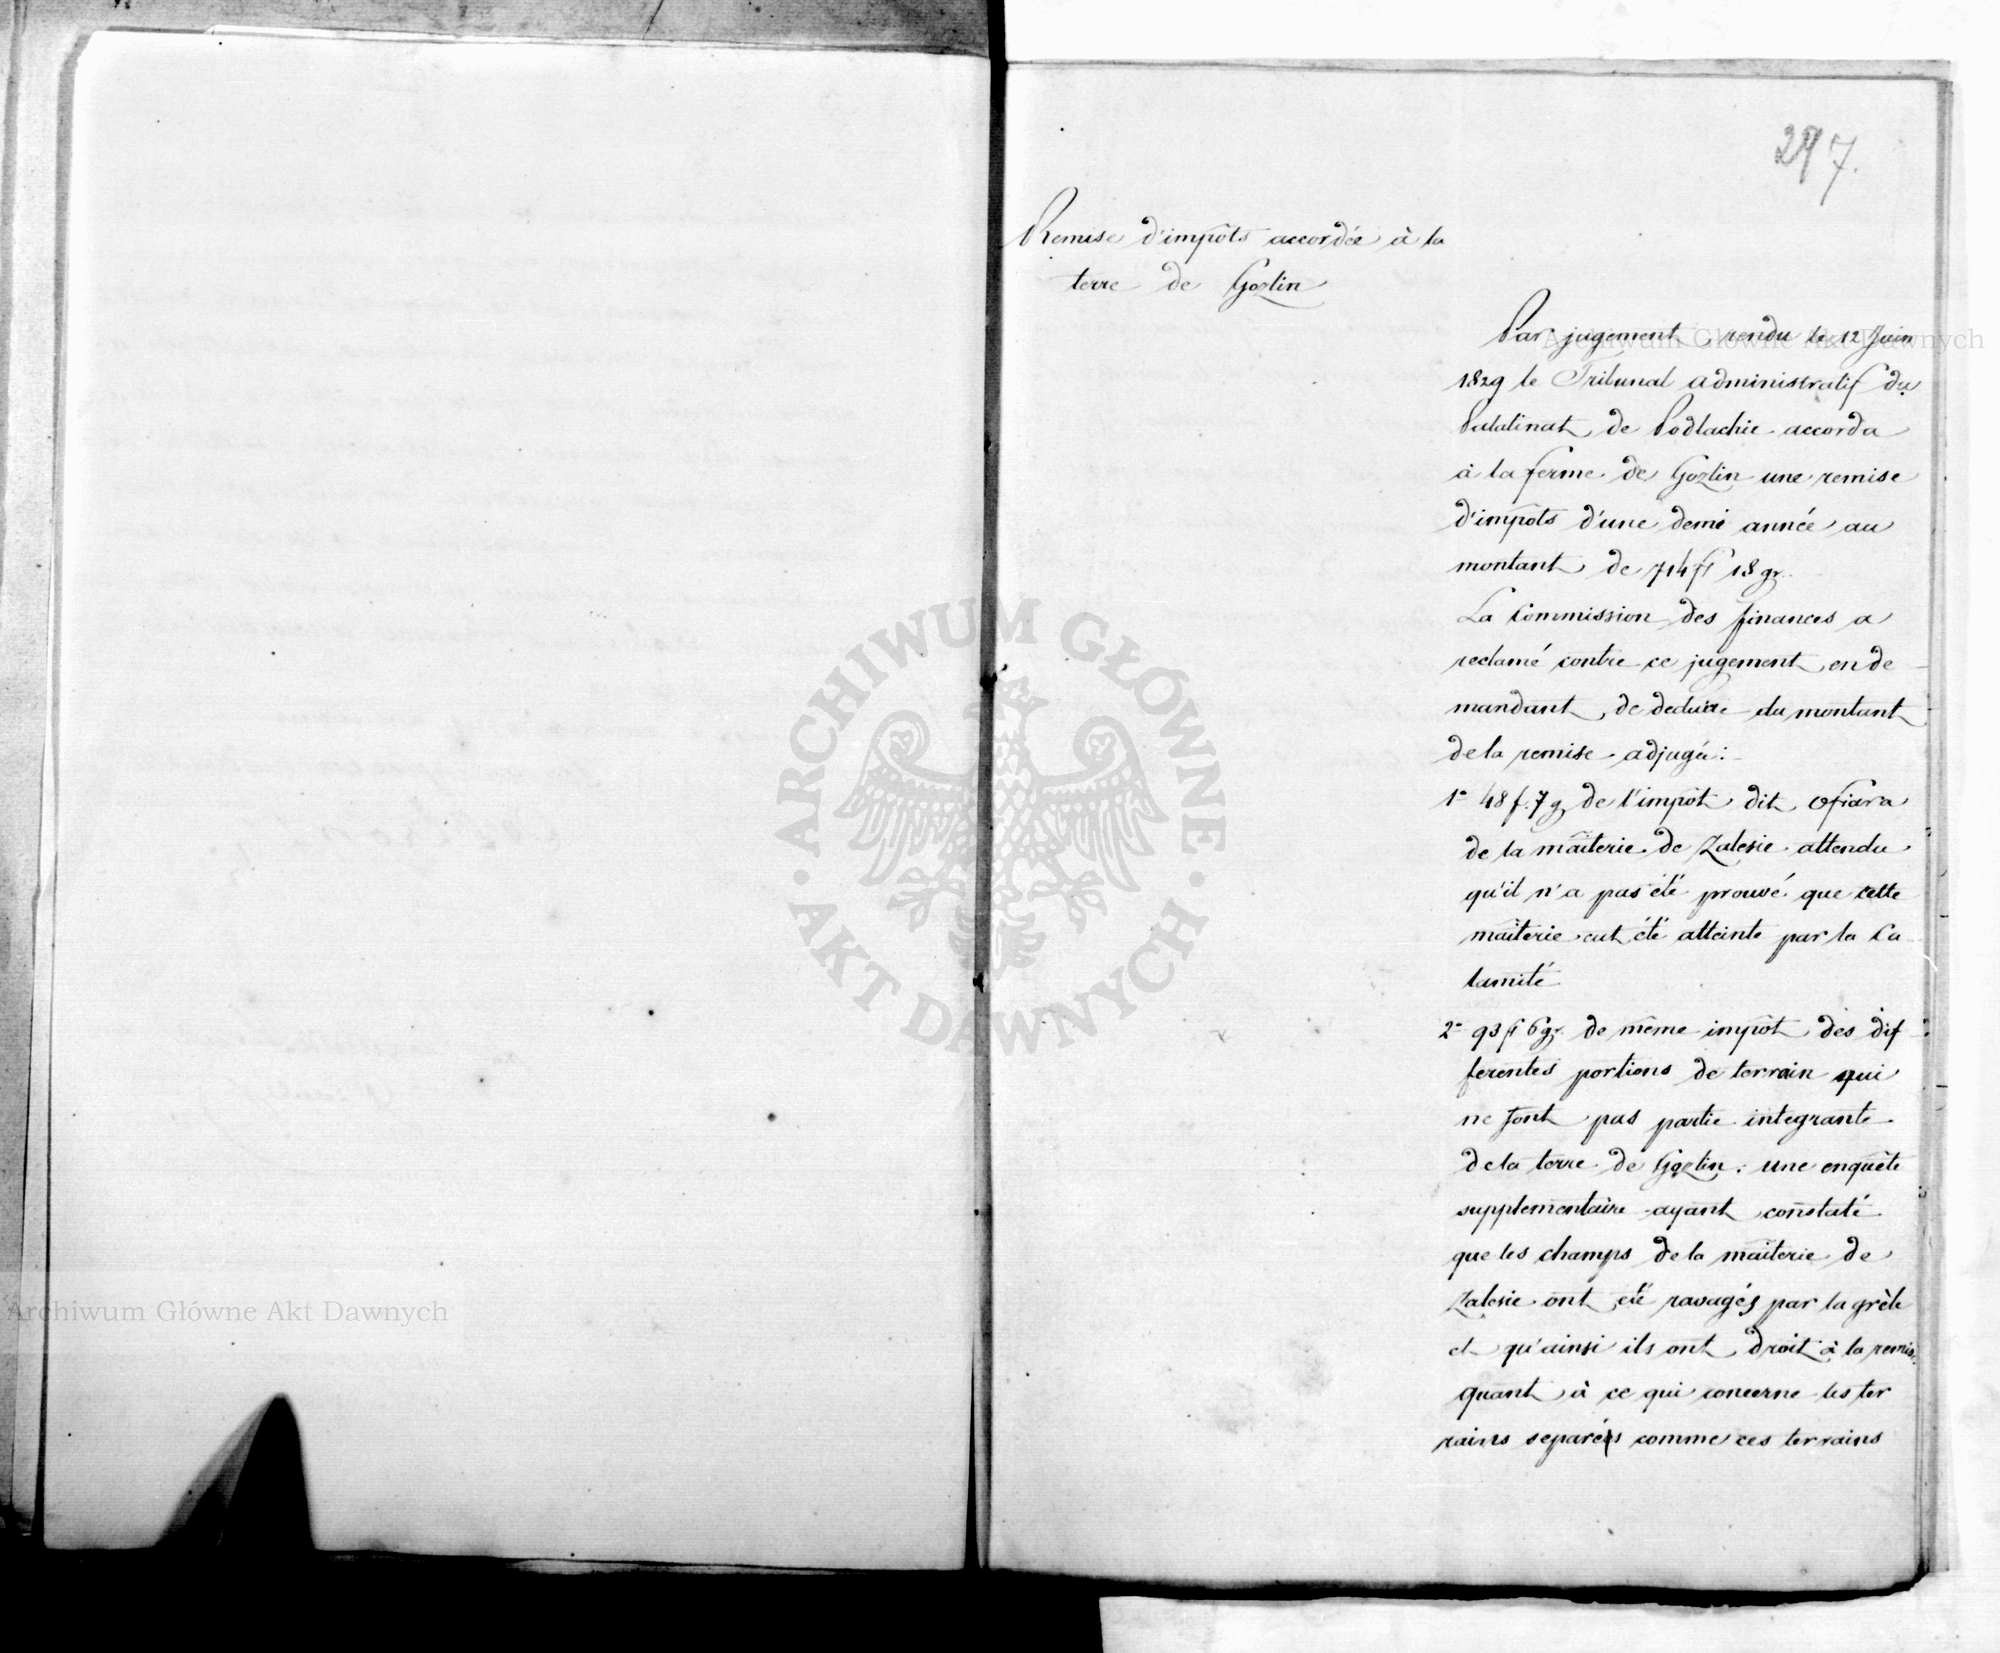 297.
Remise d'impôts accordée à la
terre de Gozlin
Par jugement rendu le 12 Juin
1829 le Tribunal administratif du
Palatinat de Podlachie accorda
à la ferme de Gozlin une remise
d'impots d'une demi année au
montant de 714 fl 18 gr.
La Commission des finances a
reclamé contre ce jugement en de
mandant de deduire du montant
de la remise adjugée:
1° 48 f. 7 g. de l'impôt dit Ofiara
de la maiterie de Zalesie attendu
qu'il n'a pas été prouvé que cette
maiterie eut été atteinte par la Ca
lamité
2° 93 fl 6 gr. de même impôt des dif
ferentes portions de terrain qui
ne font pas partie integrante
de la terre de Gozlin: une enquête
supplementaire ayant constaté
que les champs de la maiterie de
Zalesie ont été ravagés par la grêle
et qu'ainsi ils ont droit à la remise
quant à ce qui concerne les ter
rains separés comme ces terrains
Archiwum Główne Akt Dawnych
ARCHIWUM GŁÓWNE
AKT DAWNYCH
Archiwum Główne Akt Dawnych